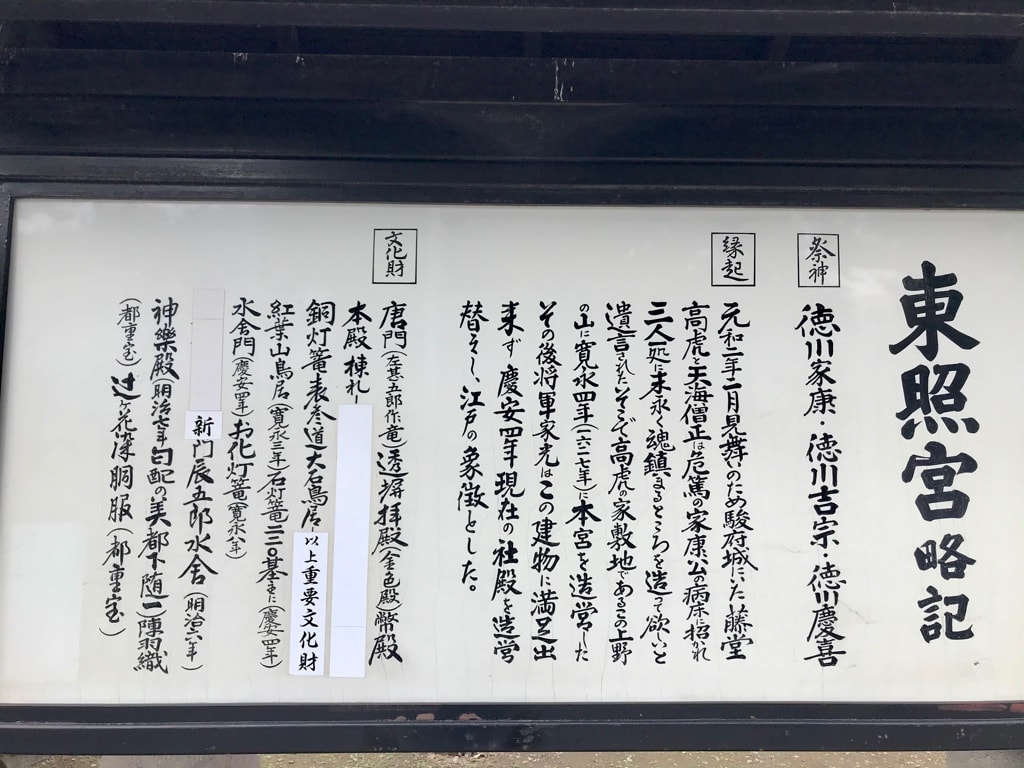 東照宮略記
祭神
徳川家康・徳川吉宗・徳川慶喜
縁起
元和二年二月見舞いのため駿府城にいた藤堂
高虎と天海僧正は危篤の家康公の病床に招かれ
三人一処に末永く魂鎮まるところを造って欲しいと
遺言されたそこで高虎の家敷地であるこの上野
の山に寛永四年(一六二七年)に本宮を造営した
その後将軍家光はこの建物に満足出
来ず慶安四年現在の社殿を造営
替えし、江戸の象徴とした。
文化財
唐門(左甚五郎作竜)透塀拝殿(金色殿)幣殿
本殿棟札
銅灯篭表参道大石鳥居
以上重要文化財
紅葉山鳥居(寛永三年)石灯篭二二〇基(慶安四年)
水舎門(慶安四年)お化灯篭(寛永八年)
新門辰五郎水舎(明治六年)
神樂殿(明治七年勾配の美都下随一)陣羽織
(都重宝)辻ヶ花染胴服(都重宝)